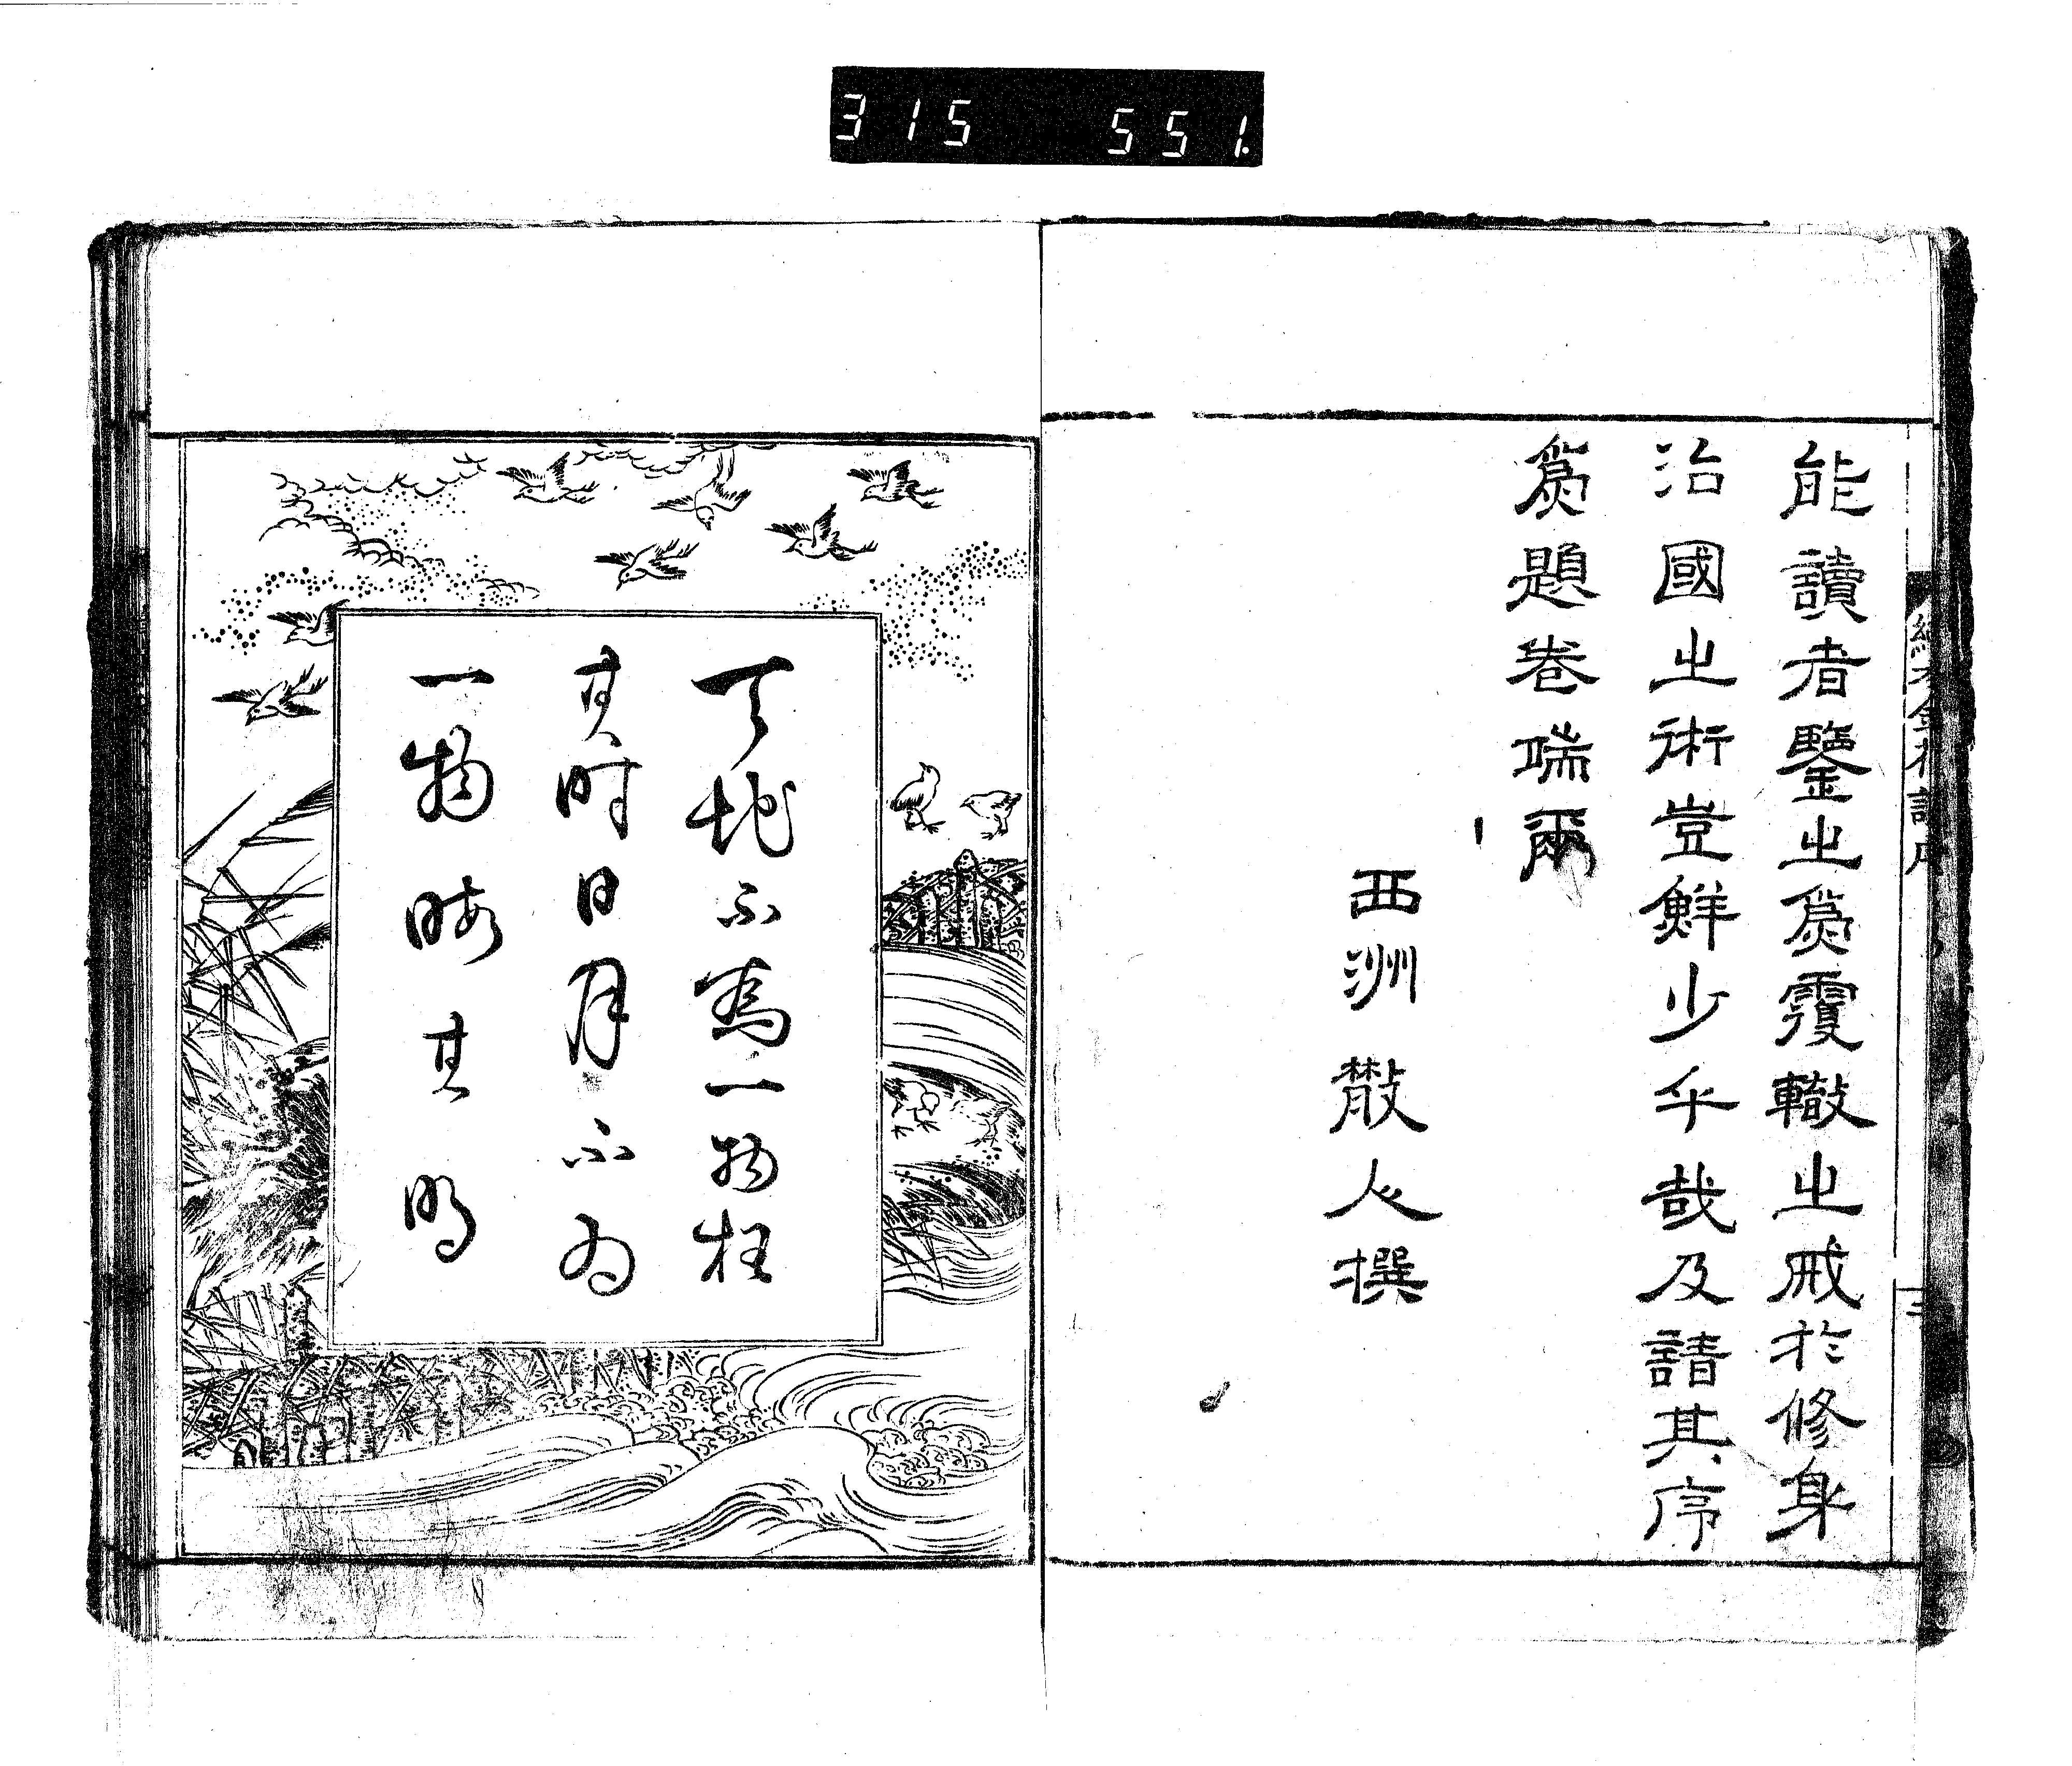 315 551.
能讀者鑒之爲覆轍之戒於修身
治國之術豈鮮少乎哉及請其序
爲題卷端爾
西洲散人撰
三
天地不爲一物枉
其時日月不為
一物晦其明